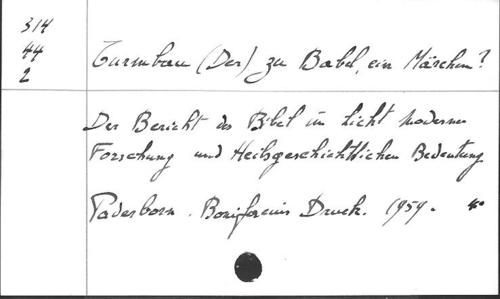 314
44
2
Turmbau (Der) zu Babel, ein Märchen?
Der Bericht der Bibel im Licht moderner
Forschung und Heilsgeschichtlichen Bedeutung
Paderborn. Bonifacius Druck. 1959.